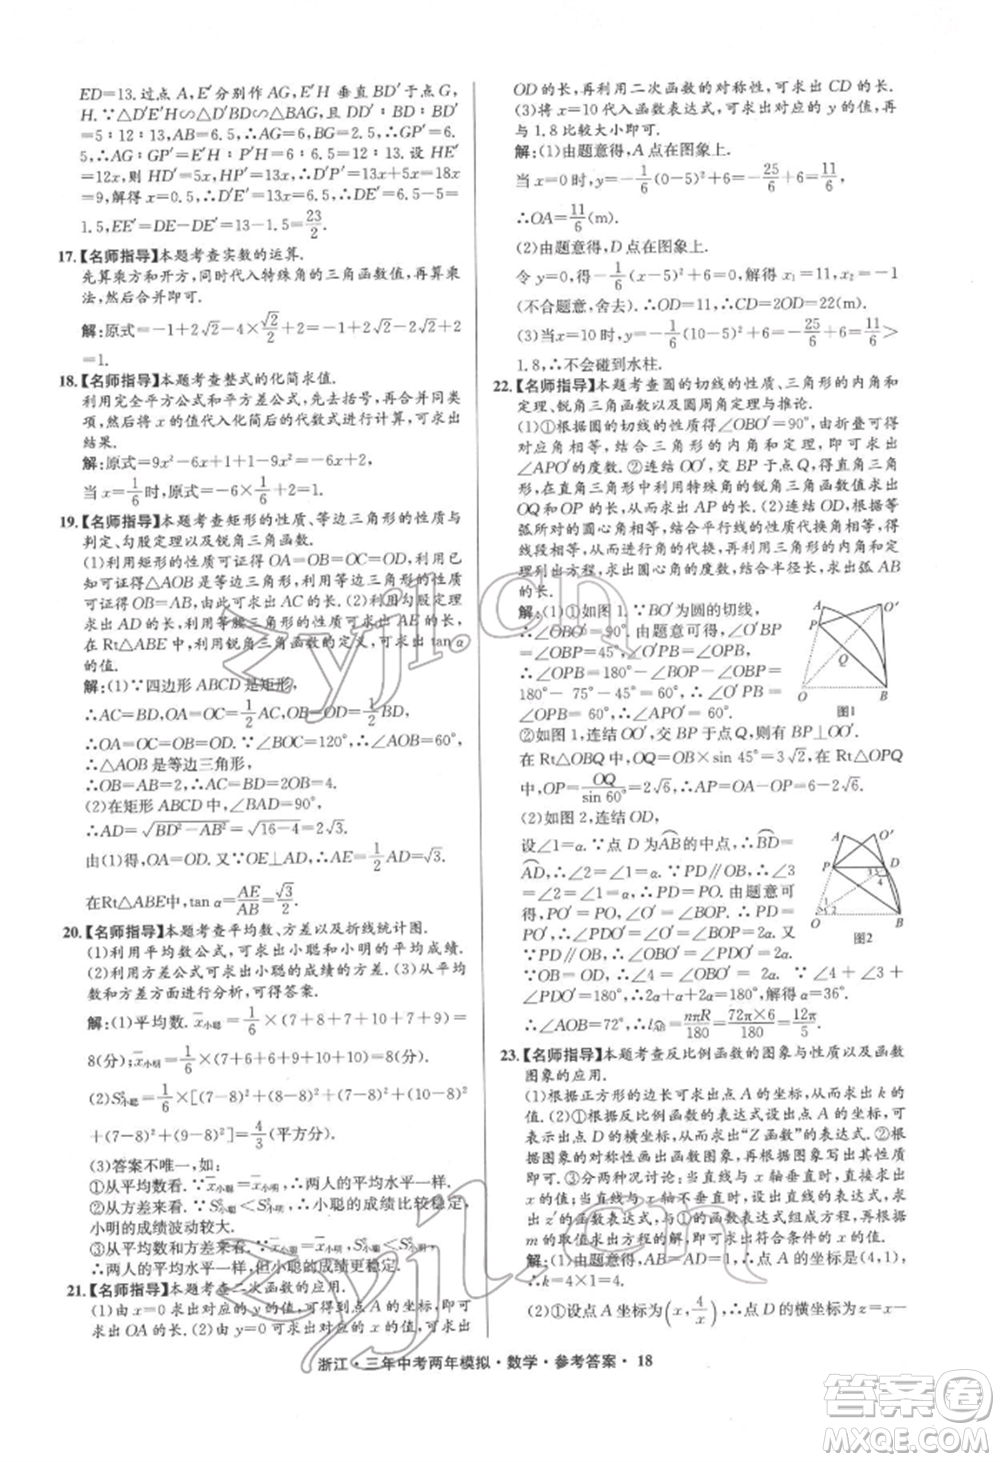 ED=13. 过点 A,E′分别作 AG,E′H 垂直 DD′于点 G,
H. ∵△D′E′H∽△D′BD∽△BAG,且 DD′∶D′B=
5∶12∶13,AB=6.5,∴AG=GP′=
6.5,∴AG∶GP′=E′H∶HP′,∴HE′=
12x,则 HD′=5x,HP′=13x,∴D′P′=5x+13x=18x
=9,解得 x=0.5,∴D′E′=6.5,∴BE′=DE′=
1.5,EE′=DE-DE′=13-1.5=23/2.
17.【名师指导】本题考查实数的运算.
先算乘方和开方,同时代入特殊角的三角函数值,再算乘
法,然后合并即可.
解:原式=-1+2√2-4×√2/2+2=-1+2√2-2√2+2
=1.
18.【名师指导】本题考查整式的化简求值.
利用完全平方公式和平方差公式,先去括号,再合并同类
项,然后将 x 的值代入化简后的代数式进行计算,可求出
结果.
解:原式=9x²-6x+1+1-9x²=-6x+2.
当 x=1/6时,原式=-6×1/6+2=1.
19.【名师指导】本题考查矩形的性质、等边三角形的性质与
判定、勾股定理以及锐角三角函数.
(1)利用矩形的性质可证得 OA=OB=OC=OD,可
推得△AOB 是等边三角形,利用等边三角形的性质可
证得 OB=AB=OA,可求出 AC 的长.(2)利用勾股定理
求出 AD 的长,利用等腰三角形的性质可求出 AE 的
长;在Rt△ABE 中,利用锐角三角函数的定义,可求出 tan
α的值.
解:(1)∵四边形 ABCD 是矩形,
∴AC=BD,OA=OC=1/2AC,OB=OD=1/2BD,
∴OA=OB=OC=OD. ∵∠BOC=120°,∴∠AOB=60°,
∴△AOB 是等边三角形,
∴OB=AB=2,∴AC=BD=2OB=4.
(2)在矩形 ABCD 中,∠BAD=90°,
∴AD=√BD²-AB²=√16-4=2√3.
由(1)得,OA=OD. 又∵OE⊥AD,∴AE=1/2AD=√3.
在Rt△ABE 中,tan α=AE/AB=√3/2.
20.【名师指导】本题考查平均数、方差以及折线统计图.
(1)利用平均数公式,可求出小聪和小明的平均成绩.
(2)利用方差公式可求出小聪的成绩的方差.(3)从平均
数和方差这两个方面进行分析,可得答案.
解:(1)平均数. x小聪=1/6×(7+8+7+10+7+9)=
8(分);x小明=1/6×(7+6+6+9+10+10)=8(分).
(2)S²小聪=1/6×[(7-8)²+(8-8)²+(7-8)²+(10-8)²
+(7-8)²+(9-8)²]=4/3(平方分).
(3)答案不唯一,如:
①从平均数看. ∵x小聪=x小明,∴两人的平均水平一样.
②从方差来看. ∵S²小聪<S²小明,∴小聪的成绩比较稳定,
小明的成绩波动较大.
③从平均数和方差来看. ∵x小聪=x小明,S²小聪<S²小明,
∴两人的平均水平一样,但小聪的成绩更稳定.
21.【名师指导】本题考查二次函数的应用.
(1)由 x=0可求出对应的 y 的值,可得到点 A 的坐标,可
求出 OA 的长.(2)由 y=0可求出对应的 x 的值,可求出
OD 的长,再利用二次函数的对称性,可求出 CD 的长.
(3)将 x=10代入函数表达式,可求出对应的 y 的值,再
与1.8比较大小即可.
解:(1)由题意得,A 点在图象上.
当 x=0时,y=-1/6(0-5)²+6=-25/6+6=11/6,
∴OA=11/6(m).
(2)由题意得,D 点在图象上.
令 y=0,得-1/6(x-5)²+6=0,解得 x₁=11,x₂=-1
(不合题意,舍去).∴OD=11,∴CD=2OD=22(m).
(3)当 x=10时,y=-1/6(10-5)²+6=-25/6+6=11/6>
1.8,∴不会碰到水柱.
22.【名师指导】本题考查圆的切线的性质、三角形的内角和
定理、锐角三角函数以及圆周角定理与推论.
(1)①根据圆的切线的性质、∠OBO′=90°,由折叠可得到
对应角相等,结合三角形的内角和定理,即可求出
∠APO′的度数.②连结 OO′,交 BP 于点 Q,易得直角三角
形,在直角三角形中利用特殊角的锐角三角函数值可求出
OQ 和 OP 的长,从而求出 AP 的长.(2)连结 OD,根据等
弧所对的圆心角相等,结合平行线的性质及折叠,可得
线段相等,进行角的代换,再利用三角形的内角和定
理列出方程,求出圆心角的度数,再利用弧长公式可求出弧
的长.
解:(1)①如图1. ∵BO′为圆的切线,
∴∠OBO′=90°. 由题意可得,∠O′BP
=∠OBP=45°,∠O′PB=∠OPB,
∴∠OPB=∠O′PB=180°-∠BOP-∠OBP=
180°-75°-45°=60°,∴∠O′PB=
∠OPB=60°,∴∠APO′=60°.
图1
②如图1,连结 OO′,交 BP 于点Q,则有 BP⊥OO′.
在 Rt△OBQ 中,OQ=OB×sin 45°=3√2.
在Rt△OPQ 中,OP=OQ/sin 60°=2√6,∴AP=OA-OP=6-2√6.
(2)如图2,连结OD,
设∠1=α. ∵点 D 为AB的中点,∴BD=
AD,∴∠2=∠1=α. ∵PD∥OB,
∴∠3=∠1=α. 由题意可得,
PO′=PO,∠PO′B=∠POB=2α.
∵PD∥OB,∴∠APD=∠AOB=2α.
图2
∵∠DPO′+∠PO′D
+∠PDO′=180°,∴2α+2α+α=180°,解得 α=36°.
∴∠AOB=72°,∴l=nπR/180=72π×6/180=12π/5.
23.【名师指导】本题考查反比例函数的图象与性质以及函数
图象的应用.
(1)根据正方形的边长可求出点 A 的坐标,从而求出 k 的
值.(2)①根据反比例函数的表达式设出点 A 的坐标,可
表示出点 D 的横坐标,从而求出“Z 函数”的表达式.②根据函
数的对称性画出函数图象,再根据图象写出函数的性
质.③分两种况讨论:当直线与 x 轴垂直时,可直接求
出 x 的值;当直线与 x 轴不垂直时,设直线的函数表达式,
与 z′的函数表达式组成方程组,再根据
m 的取值求出方程的解,即可求出符合条件的交点.
解:(1)由题意得,AB=AD=4,∴点 A 的坐标是(4,1),
∴k=4×1=4.
(2)①设点 A 坐标为(x,4/x),∴点 D 的横坐标为 z=x-
浙江·三年中考两年模拟·数学·参考答案·18
zyjl.cn
zyjl.cn
答案圈
MXQE.COM